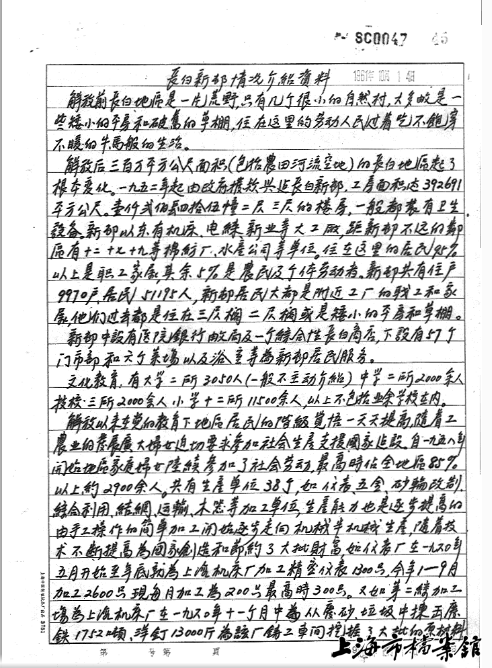 SC0047 45
1961年10月14日
長白新邨情况介紹資料
解放前長白地區是一片荒野，只有几个很小的自然村，大多數是一
些矮小的平房和破舊的草棚，住在这里的劳动人民过着吃不飽穿
不暖的牛馬般的生活。
解放后三百万平方公尺面积(包括農田河流空地)的長白地區起了
根本变化。一九五二年起由政府撥款兴建長白新邨，工房面积达392691
平方公尺。壹仟貳佰 拾伍幢二层三层的楼房，一般都裝有卫生
設备。新邨以东有机床、电 、新业等大工廠，距新邨不远的鄰
區有十二十七十九等棉紡厂、水产公司等单位。住在这里的居民95%
以上是职工家属，其余5%是農民及个体劳动者。新邨共有住户
9970户居民51195人，新邨居民大都是附近工厂的职工和家
属，他們过去都是住在三层阁二层阁或是矮小的平房和草棚。
新邨中設有医院銀行邮局及一个綜合性長白商店，下設有57个
门市部和六个菜場以及浴室等為新邨居民服务。
文化教育，有大学二所3050人(一般不主动介紹)中学二所2000余人
技校三所2000余人小学十二所11500余人，以上不包括业余学校在內。
解放以来在党的教育下地區居民的阶級覚悟一天天提高，随着工
農业的發展廣大婦女迫切要求参加社会生產支援國家建設，自一九五八年
开始地區家庭婦女陸續参加了社会劳动，最高時佔全地區85%
以上約2900余人。共有生產单位38个，如仪表、五金、砂輪改制、
綜合利用、結網、运輸、木 等加工单位，生產能力也是逐步提高的
由手工操作的简单加工开始逐步走向机械半机械生產，随着技
术不断提高為國家創造和節約了大批財富，如仪表厂在一九六〇年
五月开始至年底就為上海机床厂加工精密仪表1300只，今年1—9月
加工2600只，現每月加工為200只最高時300只。又如第二結加工
場為上海机床厂在一九六〇年十一个月中為从磨砂垃圾中揀出廢
鐵1752 噸，洋釘13000斤為該厂鑄工車间挖掘了大批的原材料
第 号第 頁
上海市檔案館